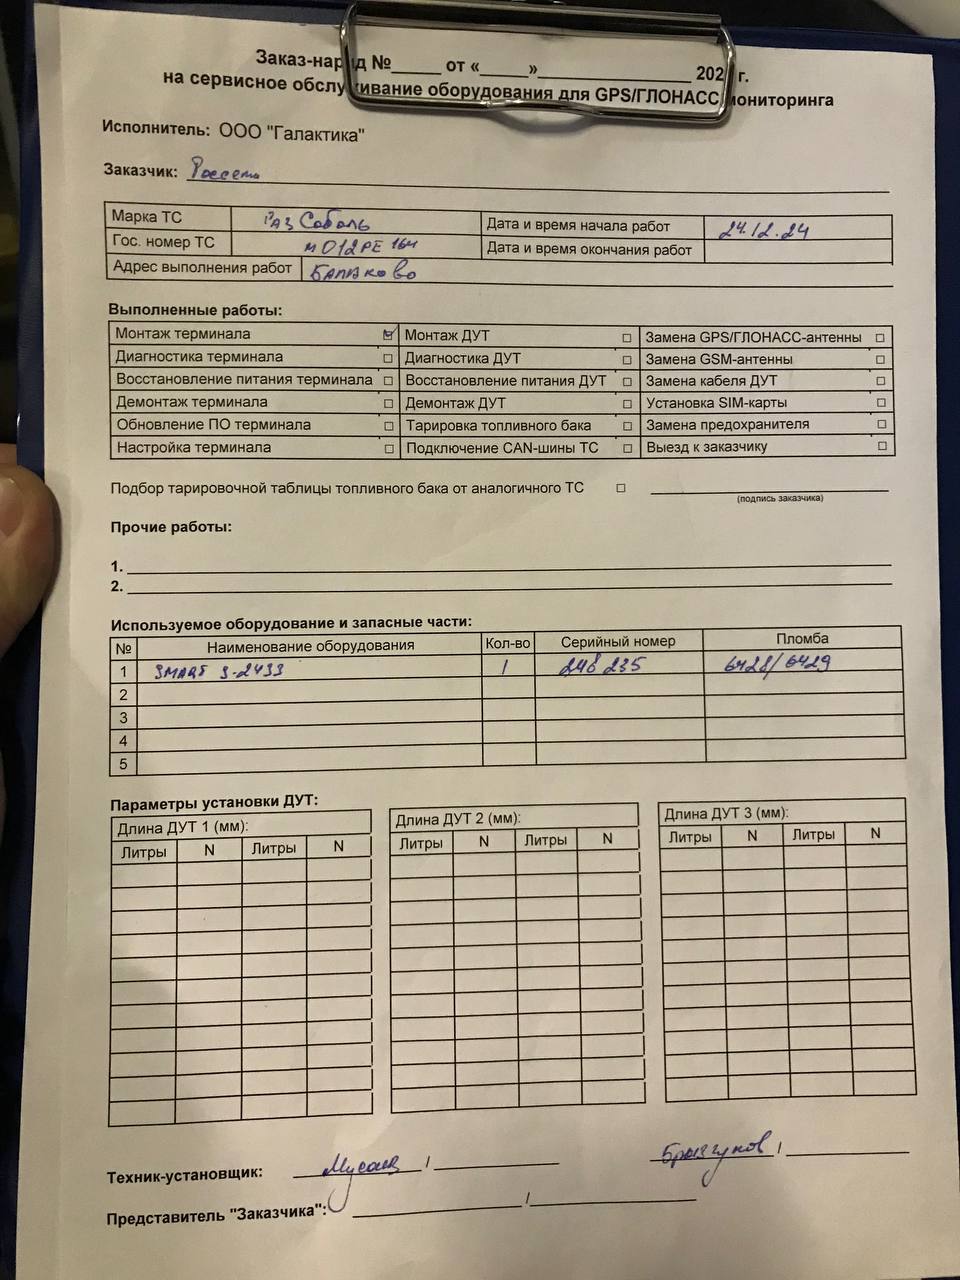 Заказ-наряд №_____ от «_____»________________ 202 г.
на сервисное обслуживание оборудования для GPS/ГЛОНАСС мониторинга
Исполнитель: ООО "Галактика"
Заказчик: Россети
Марка ТС ГАЗ Соболь Дата и время начала работ 24.12.24
Гос. номер ТС М 012 РЕ 164 Дата и время окончания работ
Адрес выполнения работ Балаково
Выполненные работы:
Монтаж терминала ☑ Монтаж ДУТ ☐ Замена GPS/ГЛОНАСС-антенны ☐
Диагностика терминала ☐ Диагностика ДУТ ☐ Замена GSM-антенны ☐
Восстановление питания терминала ☐ Восстановление питания ДУТ ☐ Замена кабеля ДУТ ☐
Демонтаж терминала ☐ Демонтаж ДУТ ☐ Установка SIM-карты ☐
Обновление ПО терминала ☐ Тарировка топливного бака ☐ Замена предохранителя ☐
Настройка терминала ☐ Подключение CAN-шины ТС ☐ Выезд к заказчику ☐
Подбор тарировочной таблицы топливного бака от аналогичного ТС ☐
(подпись заказчика)
Прочие работы:
1.
2.
Используемое оборудование и запасные части:
№ Наименование оборудования Кол-во Серийный номер Пломба
1 SMART S-2433 1 248235 6428/6429
2
3
4
5
Параметры установки ДУТ:
Длина ДУТ 1 (мм): Длина ДУТ 2 (мм): Длина ДУТ 3 (мм):
Литры N Литры N Литры N Литры N Литры N Литры N
Техник-установщик: Мусаев / Брызгунов /
Представитель "Заказчика": /